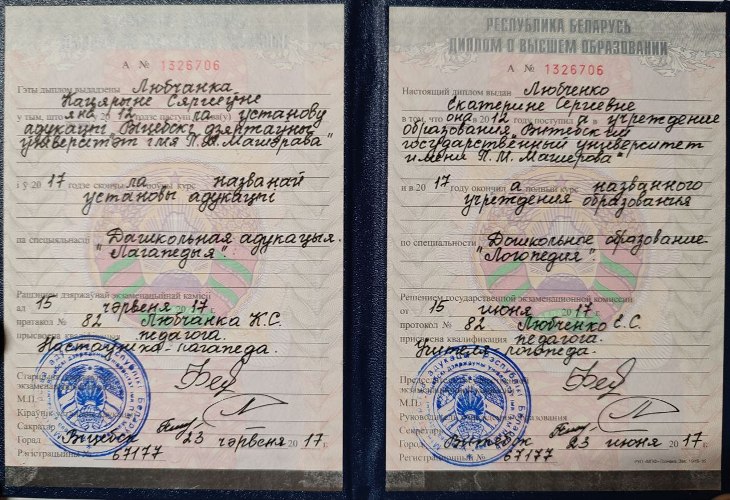 А № 1326706
Гэты дыплом выдадзены Любчанка
Кацярыне Сяргееўне
у тым, што яна 12 годзе паступ ла ва установу
адукацыі "Віцебскі дзяржаўны
універсітэт імя П.М. Машэрава"
і ў 20 17 годзе скончы ла поўны курс названай
установы адукацыі
па спецыяльнасці "Дашкольная адукацыя.
Лагапедыя".
Рашэннем дзяржаўнай экзаменацыйнай камісіі
ад 15 чэрвеня 20 17 г.
пратакол № 82 Любчанка К.С.
прысвоена кваліфікацыя педагога.
Настаўніка-лагапеда.
М.П.
Сакратар
Горад Віцебск 23 чэрвеня 20 17 г.
Рэгістрацыйны № 67177
РЕСПУБЛИКА БЕЛАРУСЬ
ДИПЛОМ О ВЫСШЕМ ОБРАЗОВАНИИ
А № 1326706
Настоящий диплом выдан Любченко
Екатерине Сергеевне
в том, что она в 20 12 году поступил а в учреждение
образования "Витебский
государственный университет
имени П.М. Машерова"
и в 20 17 году окончил а полный курс названного
учреждения образования
по специальности "Дошкольное образование.
Логопедия".
Решением государственной экзаменационной комиссии
от 15 июня 20 17 г.
протокол № 82 Любченко Е.С.
присвоена квалификация педагога.
Учителя-логопеда.
М.П.
Секретарь
Город Витебск 23 июня 20 17 г.
Регистрационный № 67177